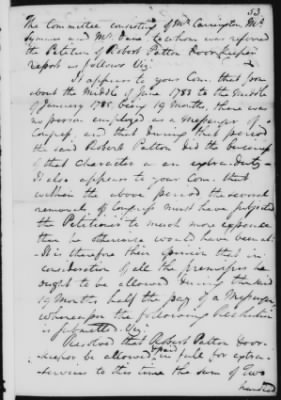 53
The Committee consisting of Mr. Carrington, Mr.
Symmes and Mr. Dane to whom was referred
the Petition of Robert Patton Door Keeper
report as follows Viz:
It appears to your Com. that from
about the Middle of June 1783 to the Middle
of January 1785 being 19 Months, there was
no person employed as a Messenger of
Congress, and that during that period
the said Robert Patton did the business
of that character as an extra duty—
It also appears to your Com. that
within the above period the several
removals of Congress must have subjected
the Petitioner to much more expence
than he otherwise would have been at—
It is therefore their opinion that in
consideration of all the premises he
ought to be allowed during the said
19 Months, half the pay of a Messenger
whereupon the following Resolution
is submitted. Viz:
Resolved that Robert Patton Door-
keeper be allowed in full for extra
services to this time the sum of two
hundred